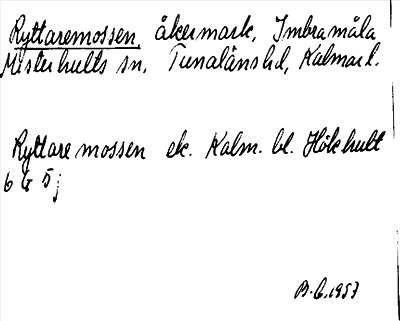 Ryttaremossen, åkermark, Imbramåla
Misterhults sn, Tunaläns hd, Kalmar l.
Ryttaremossen ek. Kalm. bl. Hökhult
6 G 5 j
B.G. 1957